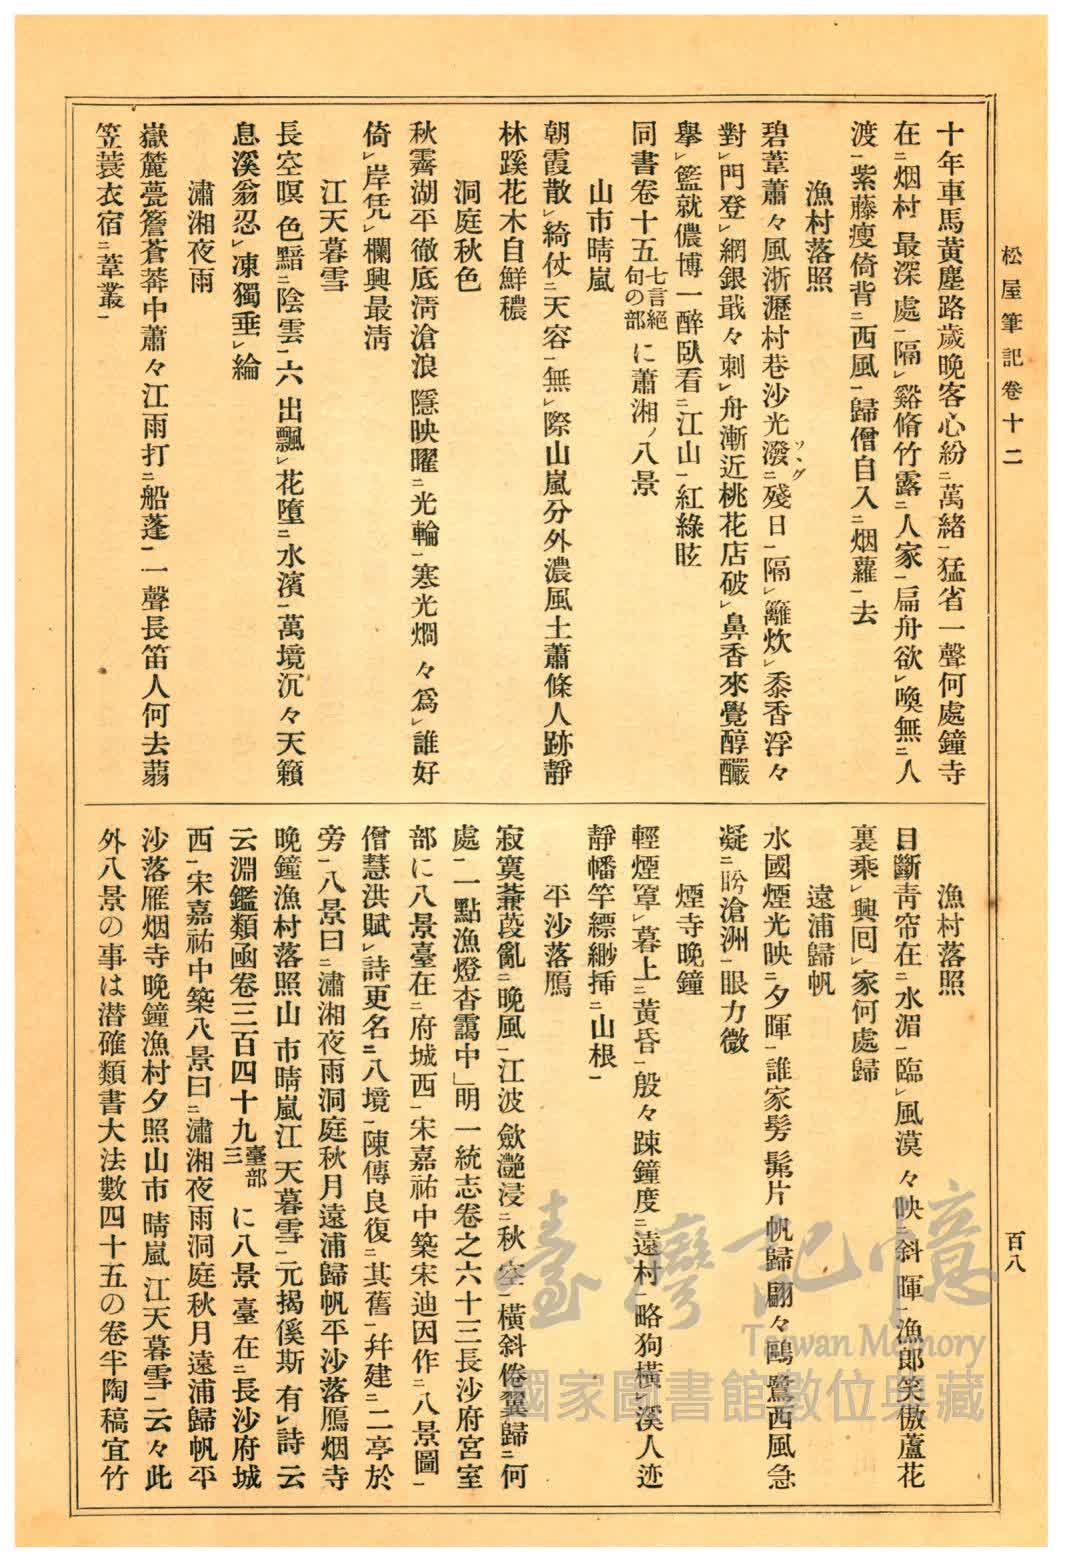 松屋筆記卷十二
百八
十年車馬黃塵路歲晚客心紛ニ萬緒一猛省一聲何處鐘寺
在ニ烟村最深處一隔レ谿脩竹露ニ人家一扁舟欲レ喚無ニ人
渡一紫藤瘦倚背ニ西風一歸僧自入ニ烟蘿一去
漁村落照
碧葦蕭々風浙瀝村巷沙光潑ソヽグニ殘日一隔レ籬炊レ黍香浮々
對レ門登レ網銀戢々刺レ舟漸近桃花店破レ鼻香來覺醇釅
擧レ籃就儂博一醉臥看ニ江山一紅綠眩
同書卷十五七言絶句の部に蕭湘ノ八景
山市晴嵐
朝霞散レ綺仗ニ天容一無レ際山嵐分外濃風土蕭條人跡靜
林蹊花木自鮮穠
洞庭秋色
秋霽湖平徹底淸滄浪隱映曜ニ光輪一寒光烱々爲レ誰好
倚レ岸凭レ欄興最淸
江天暮雪
長空暝色黯ニ陰雲一六出飄レ花墮ニ水濱一萬境沉々天籟
息溪翁忍レ凍獨垂レ綸
瀟湘夜雨
嶽麓甍簷蒼莽中蕭々江雨打ニ船蓬一一聲長笛人何去蒻
笠蓑衣宿ニ葦叢一
漁村落照
目斷靑帘在ニ水湄一臨レ風漠々映ニ斜暉一漁郎笑傲蘆花
裏乘レ興囘レ家何處歸
遠浦歸帆
水國煙光映ニ夕暉一誰家髣髴片帆歸翩々鷗鷺西風急
凝ニ盻滄洲一眼力微
煙寺晩鐘
輕煙罩レ暮上ニ黃昏一殷々踈鐘度ニ遠村一略狗橫レ溪人迹
靜幡竿縹緲揷ニ山根一
平沙落鴈
寂寞蒹葭亂ニ晚風一江波歛灔浸ニ秋空一橫斜倦翼歸ニ何
處一一點漁燈杳靄中」明一統志卷之六十三長沙府宮室
部に八景臺在ニ府城西一宋嘉祐中築宋迪因作ニ八景圖一
僧慧洪賦レ詩更名ニ八境一陳傳良復ニ其舊一幷建ニ二亭於
旁一八景曰ニ瀟湘夜雨洞庭秋月遠浦歸帆平沙落鴈烟寺
晩鐘漁村落照山市晴嵐江天暮雪一元揭傒斯有レ詩云
云淵鑑類函卷三百四十九臺部三に八景臺在ニ長沙府城
西一宋嘉祐中築八景曰ニ瀟湘夜雨洞庭秋月遠浦歸帆平
沙落雁烟寺晩鐘漁村夕照山市晴嵐江天暮雪一云々此
外八景の事は潛確類書大法數四十五の卷半陶稿宜竹
臺灣記憶
Taiwan Memory
國家圖書館數位典藏